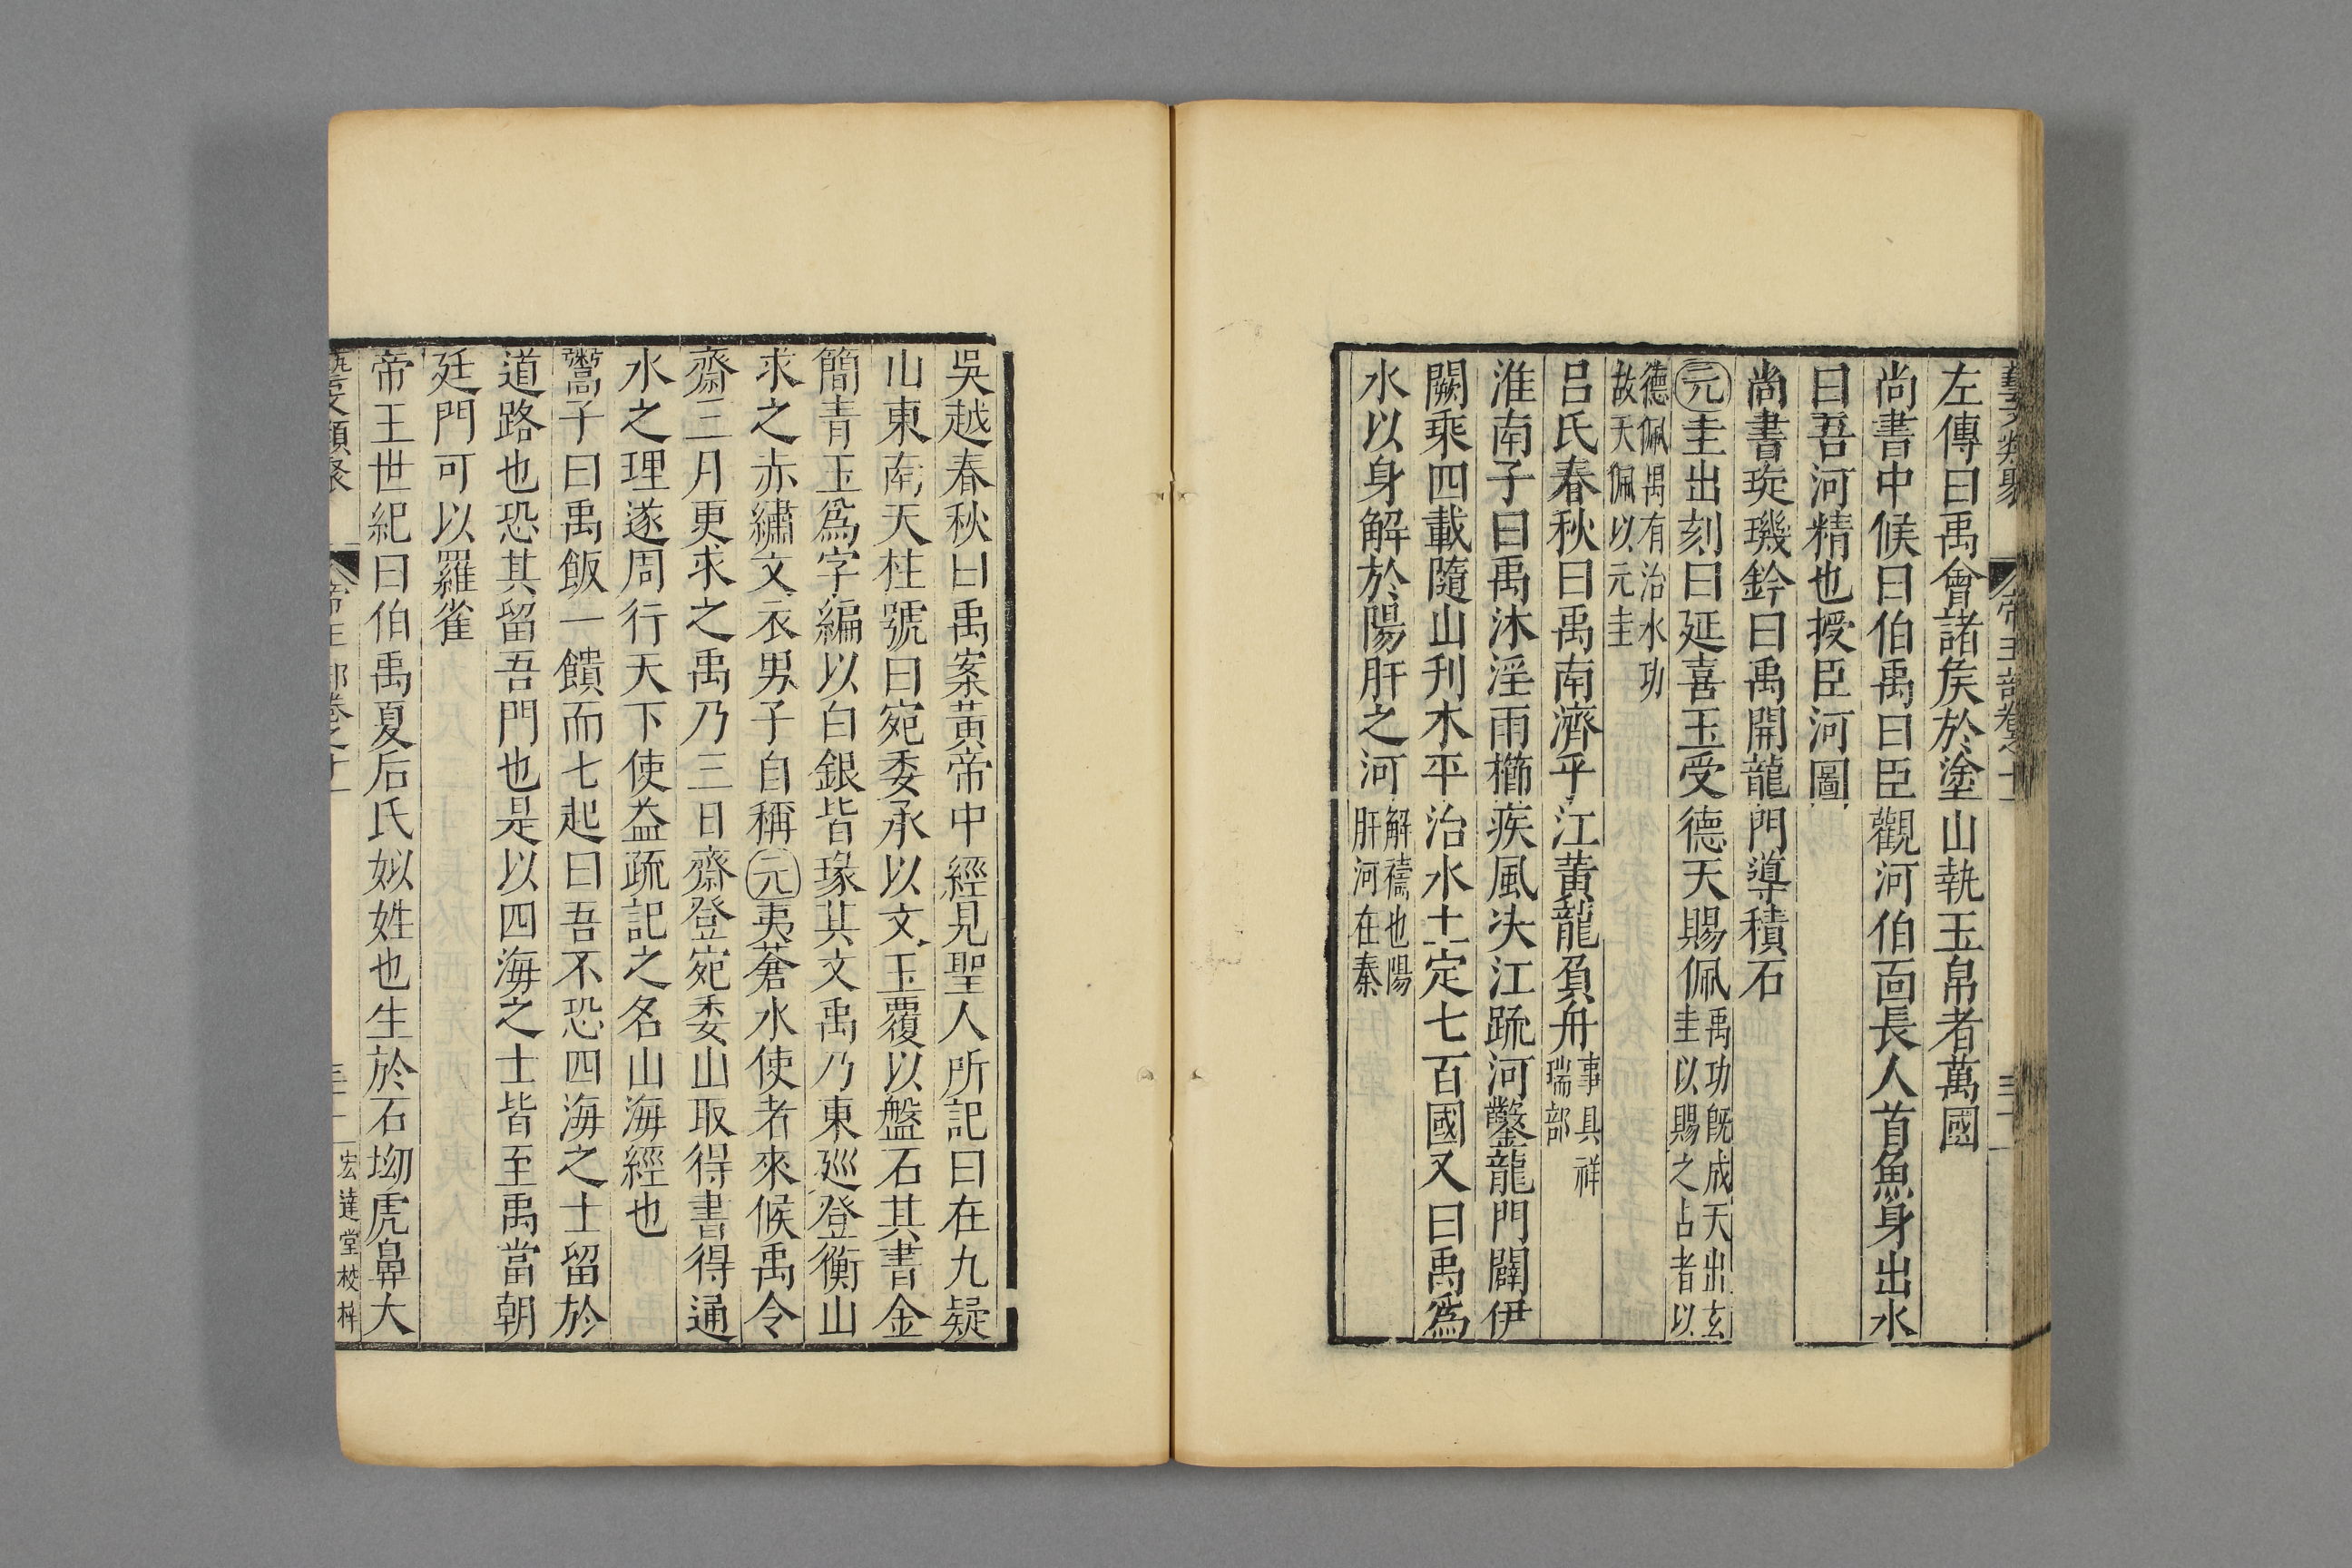 左傳曰禹會諸矦於塗山執玉帛者萬國
尚書中候曰伯禹曰臣觀河伯面長人首魚身出水
曰吾河精也授臣河圖
尚書琁璣鈐曰禹開龍門導積石
元圭出刻曰延喜玉受德天賜佩禹功旣成天出玄圭以賜之占者以
德佩禹有治水功故天佩以元圭
呂氏春秋曰禹南濟乎江黃龍負舟事具祥瑞部
淮南子曰禹沐淫雨櫛疾風决江疏河鑿龍門闢伊
闕乘四載隨山刋木平治水土定七百國又曰禹爲
水以身解於陽肝之河解禱也陽肝河在秦
吳越春秋曰禹案黃帝中經見聖人所記曰在九疑
山東南天柱號曰宛委承以文玉覆以盤石其書金
簡青玉爲字編以白銀皆瑑其文禹乃東廵登衡山
求之赤繡文衣男子自稱元夷蒼水使者來候禹令
齋三月更求之禹乃三日齋登宛委山取得書得通
水之理遂周行天下使益疏記之名山海經也
鬻子曰禹飯一饋而七起曰吾不恐四海之士留於
道路也恐其留吾門也是以四海之士皆至禹當朝
廷門可以羅雀
帝王世紀曰伯禹夏后氏姒姓也生於石坳虎鼻大
宏達堂校梓